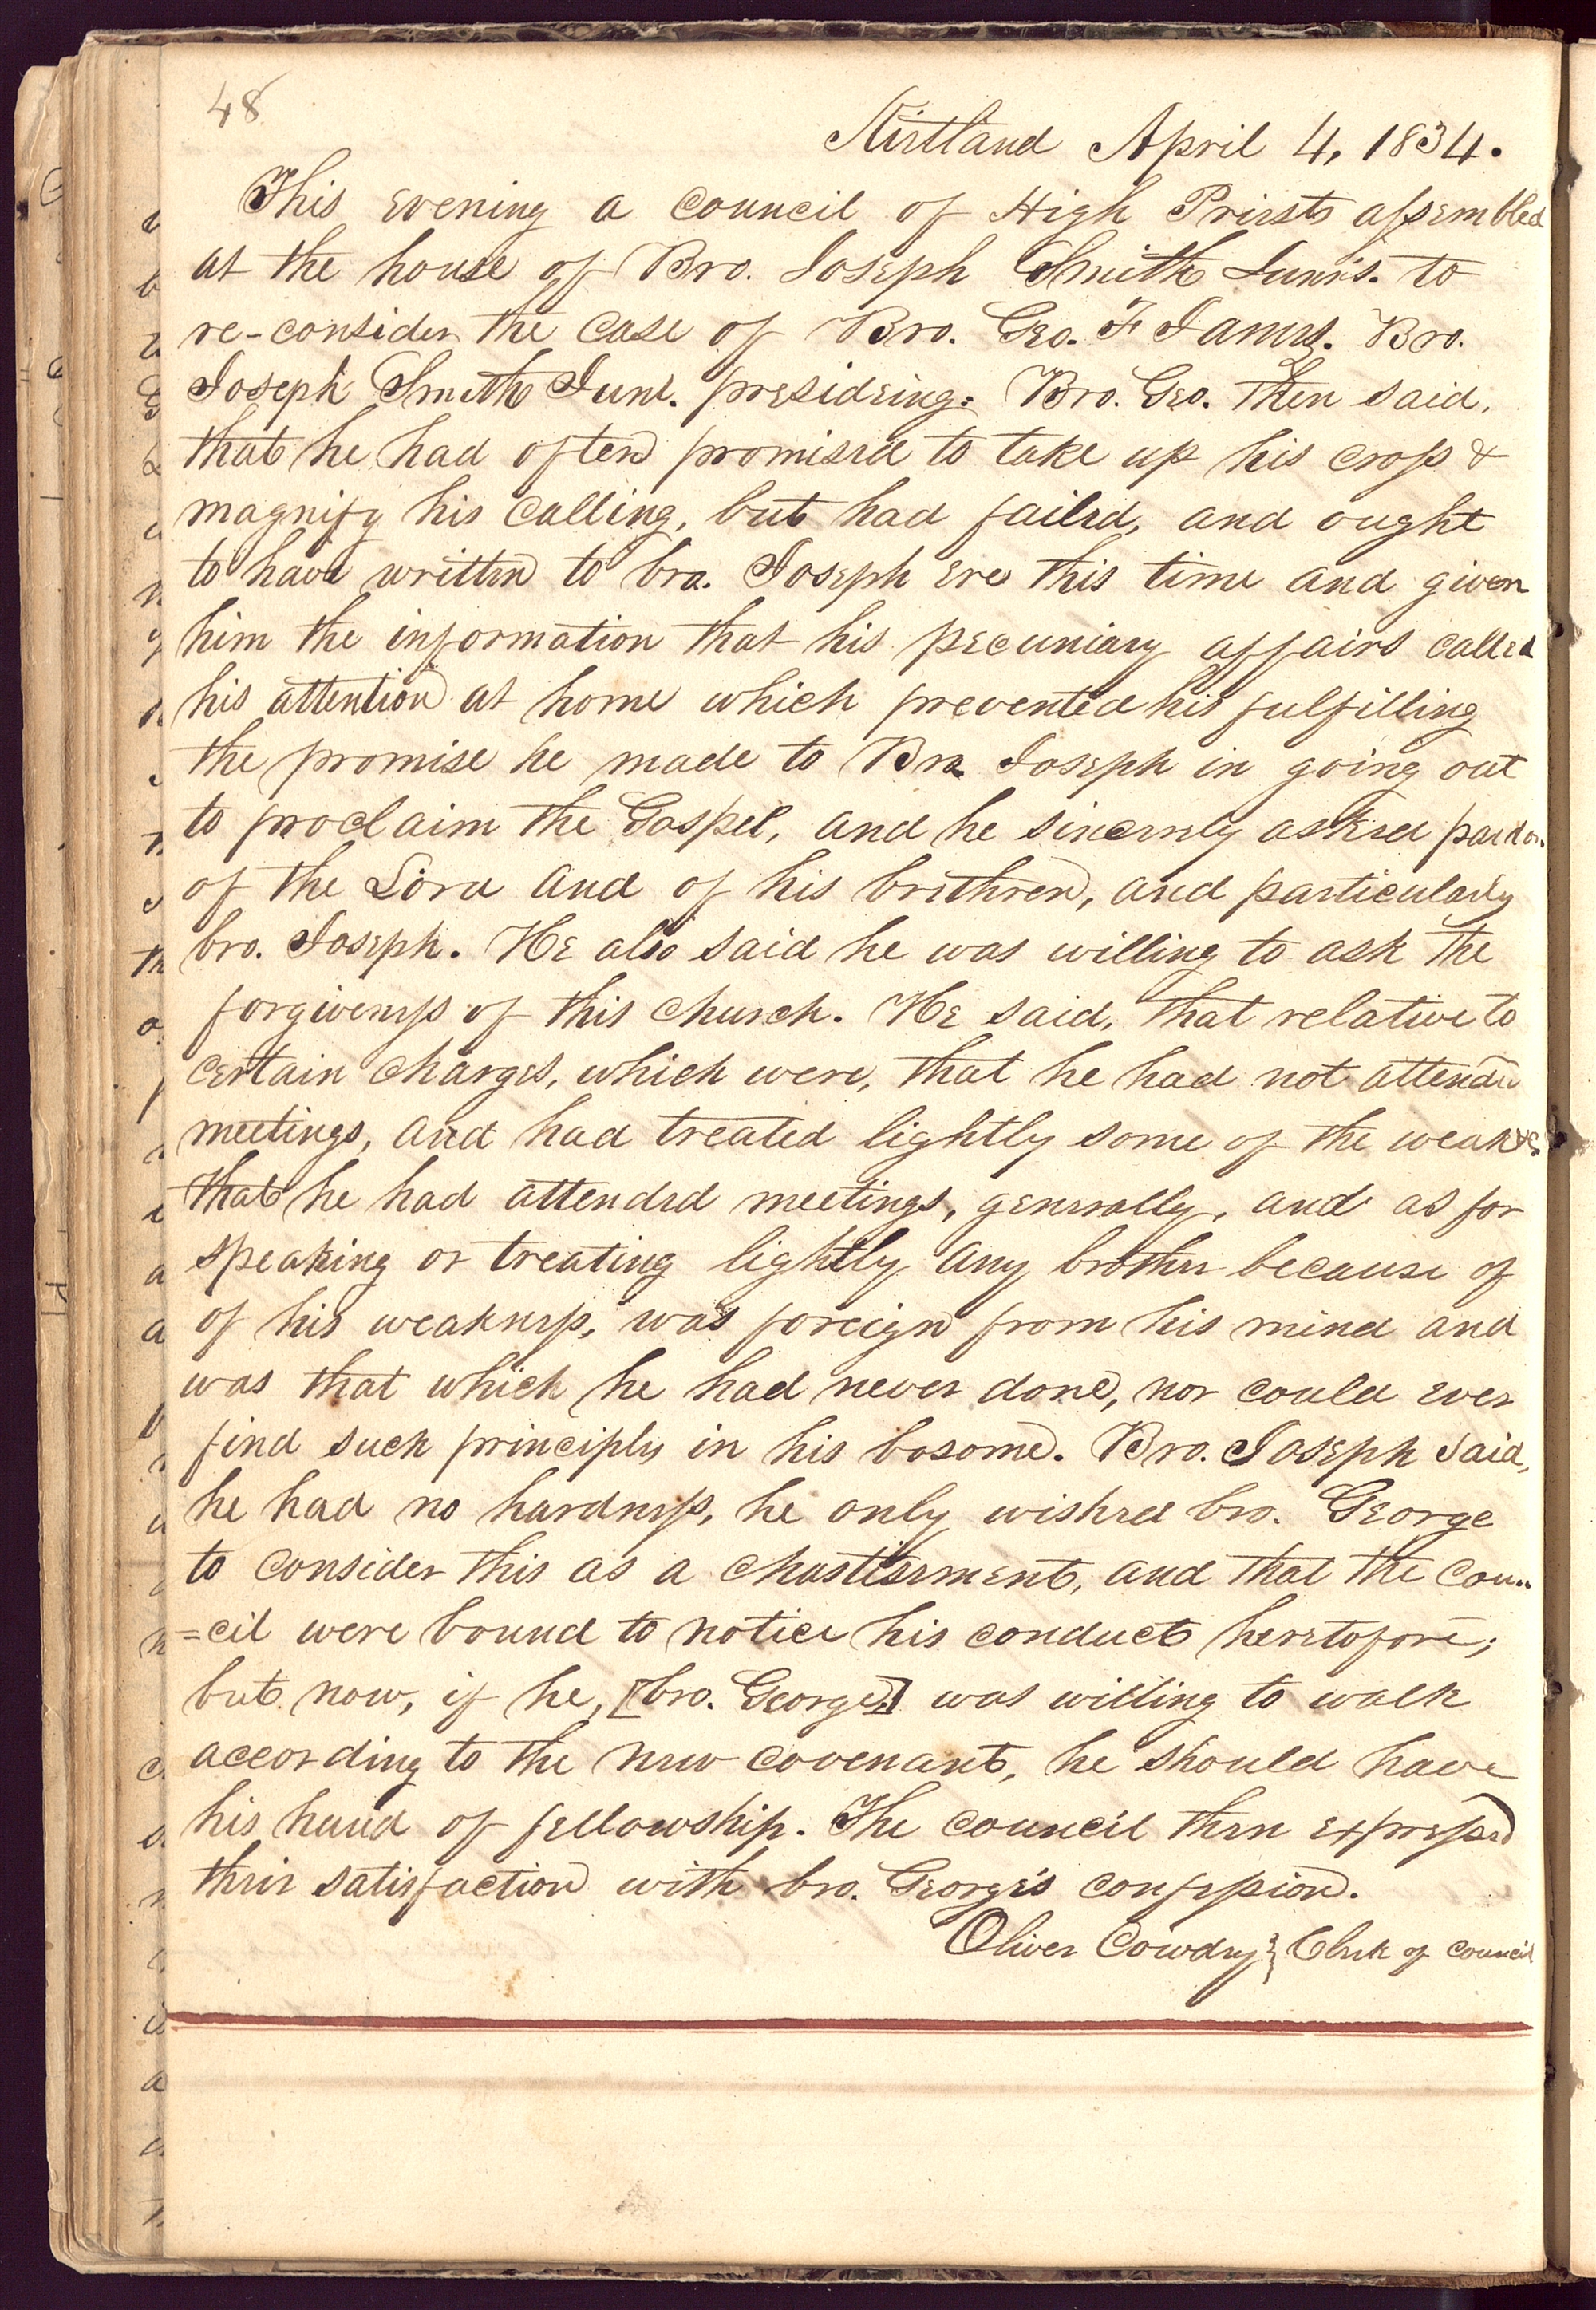 48
Kirtland April 4, 1834.
This evening a council of High Priests assembled
at the house of Bro. Joseph Smith Junr's. to
re-consider the case of Bro. Geo. F James. Bro.
Joseph Smith Junr. presideing. Bro. Geo. then said,
that he had often promised to take up his cross &
magnify his calling, but had failed, and ought
to have written to bro. Joseph ere this time and given
him the information that his pecuniary affairs called
his attention at home which prevented his fulfilling
the promise he made to Bro Joseph in going out
to proclaim the Gospel, and he sincerely asked pardon
of the Lord and of his brethren, and particularly
bro. Joseph. He also said he was willing to ask the
forgiveness of this church. He said, that relative to
certain charges, which were, that he had not attended
meetings, and had treated lightly some of the weak &c.
that he had attended meetings, generally, and as for
speaking or treating lightly any brother because of
of his weakness, was foreign from his mind and
was that which he had never done, nor could ever
find such principles in his bosome. Bro. Joseph said,
he had no hardness, he only wished bro. George
to consider this as a chastisement, and that the coun-
=cil were bound to notice his conduct heretofore;
but now, if he, [bro. George] was willing to walk
according to the new covenant, he should have
his hand of fellowship. The council then expressed
their satisfaction with bro. George's confession.
Oliver Cowdry } Clerk of council